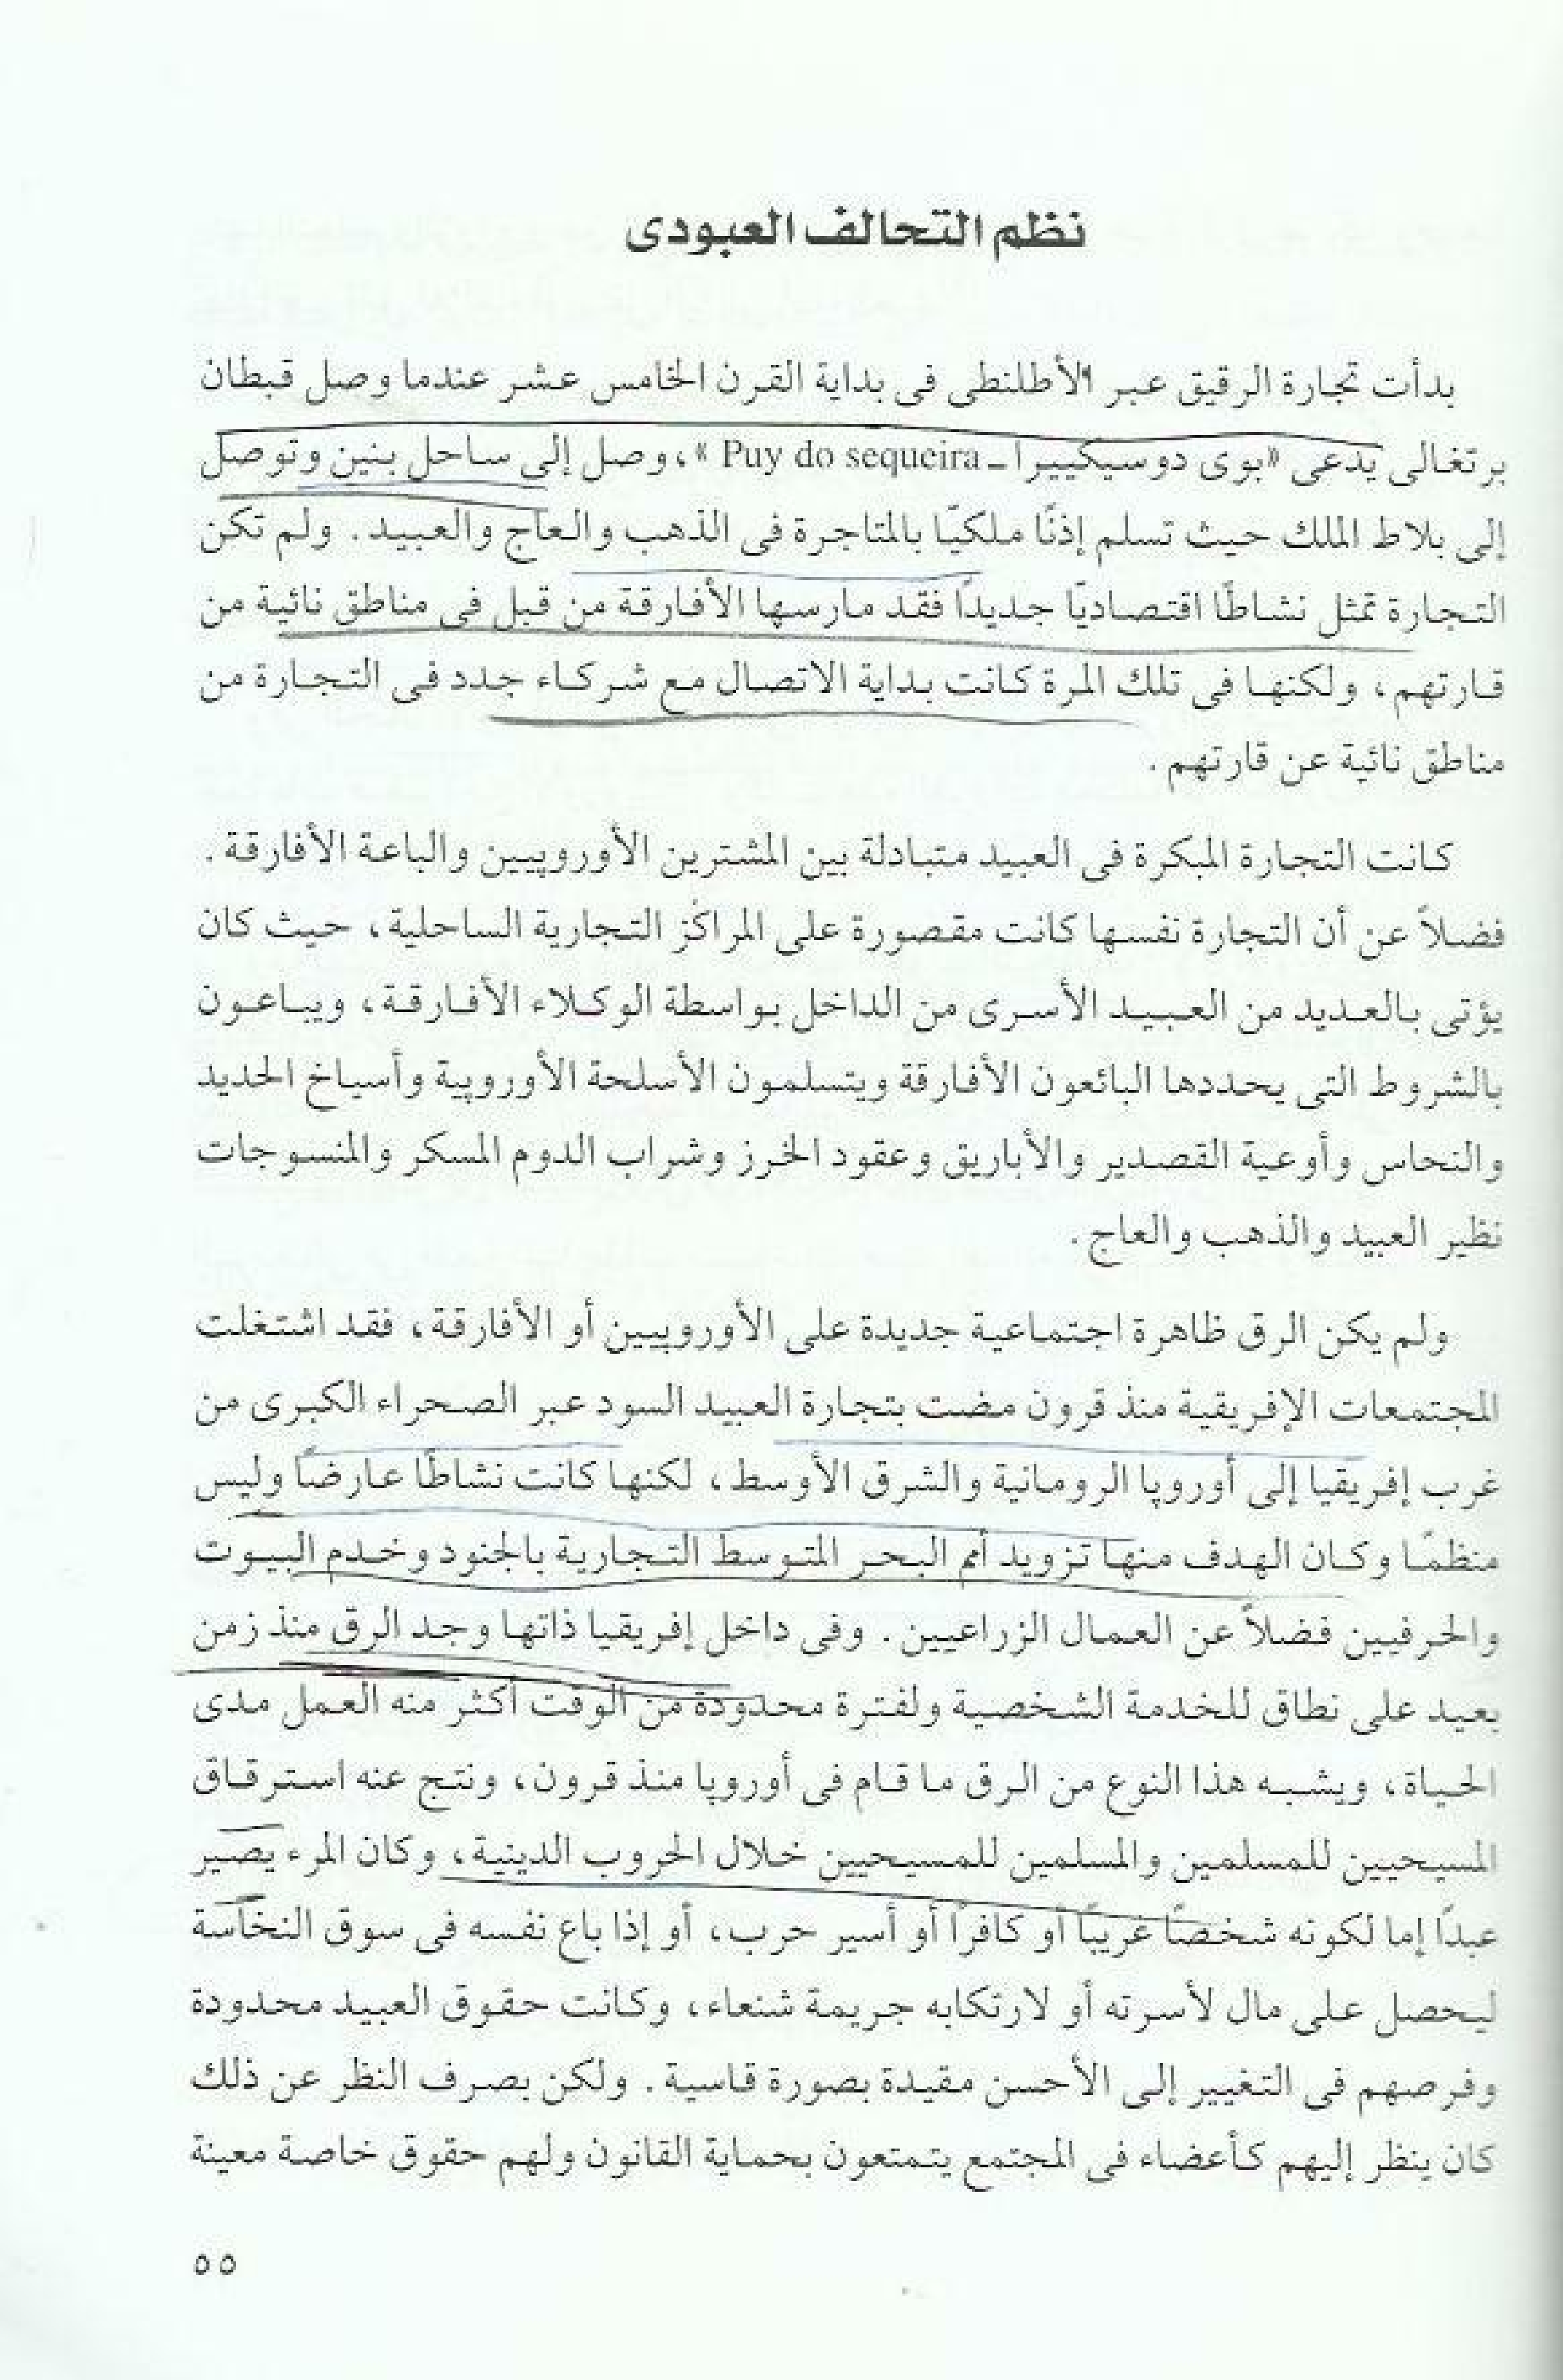 نظم التحالف العبودى
بدأت تجارة الرقيق عبر الأطلنطى فى بداية القرن الخامس عشر عندما وصل قبطان
برتغالى يدعى «بوى دو سيكييرا ــ Puy do sequeira »، وصل إلى ساحل بنين وتوصل
إلى بلاط الملك حيث تسلم إذنًا ملكيًا بالمتاجرة فى الذهب والعاج والعبيد. ولم تكن
التجارة تمثل نشاطًا اقتصاديًا جديدًا فقد مارسها الأفارقة من قبل فى مناطق نائية من
قارتهم، ولكنها فى تلك المرة كانت بداية الاتصال مع شركاء جدد فى التجارة من
مناطق نائية عن قارتهم.
كانت التجارة المبكرة فى العبيد متبادلة بين المشترين الأوروپيين والباعة الأفارقة.
فضلاً عن أن التجارة نفسها كانت مقصورة على المراكز التجارية الساحلية، حيث كان
يؤتى بالعديد من العبيد الأسرى من الداخل بواسطة الوكلاء الأفارقة، ويباعون
بالشروط التى يحددها البائعون الأفارقة ويتسلمون الأسلحة الأوروپية وأسياخ الحديد
والنحاس وأوعية القصدير والأباريق وعقود الخرز وشراب الدوم المسكر والمنسوجات
نظير العبيد والذهب والعاج.
ولم يكن الرق ظاهرة اجتماعية جديدة على الأوروپيين أو الأفارقة، فقد اشتغلت
المجتمعات الإفريقية منذ قرون مضت بتجارة العبيد السود عبر الصحراء الكبرى من
غرب إفريقيا إلى أوروپا الرومانية والشرق الأوسط، لكنها كانت نشاطًا عارضًا وليس
منظمًا وكان الهدف منها تزويد أمم البحر المتوسط التجارية بالجنود وخدم البيوت
والحرفيين فضلاً عن العمال الزراعيين. وفى داخل إفريقيا ذاتها وجد الرق منذ زمن
بعيد على نطاق للخدمة الشخصية ولفترة محدودة من الوقت أكثر منه العمل مدى
الحياة، ويشبه هذا النوع من الرق ما قام فى أوروپا منذ قرون، ونتج عنه استرقاق
المسيحيين للمسلمين والمسلمين للمسيحيين خلال الحروب الدينية، وكان المرء يصير
عبدًا إما لكونه شخصًا غريبًا أو كافرًا أو أسير حرب، أو إذا باع نفسه فى سوق النخاسة
ليحصل على مال لأسرته أو لارتكابه جريمة شنعاء، وكانت حقوق العبيد محدودة
وفرصهم فى التغيير إلى الأحسن مقيدة بصورة قاسية. ولكن بصرف النظر عن ذلك
كان ينظر إليهم كأعضاء فى المجتمع يتمتعون بحماية القانون ولهم حقوق خاصة معينة
٥٥